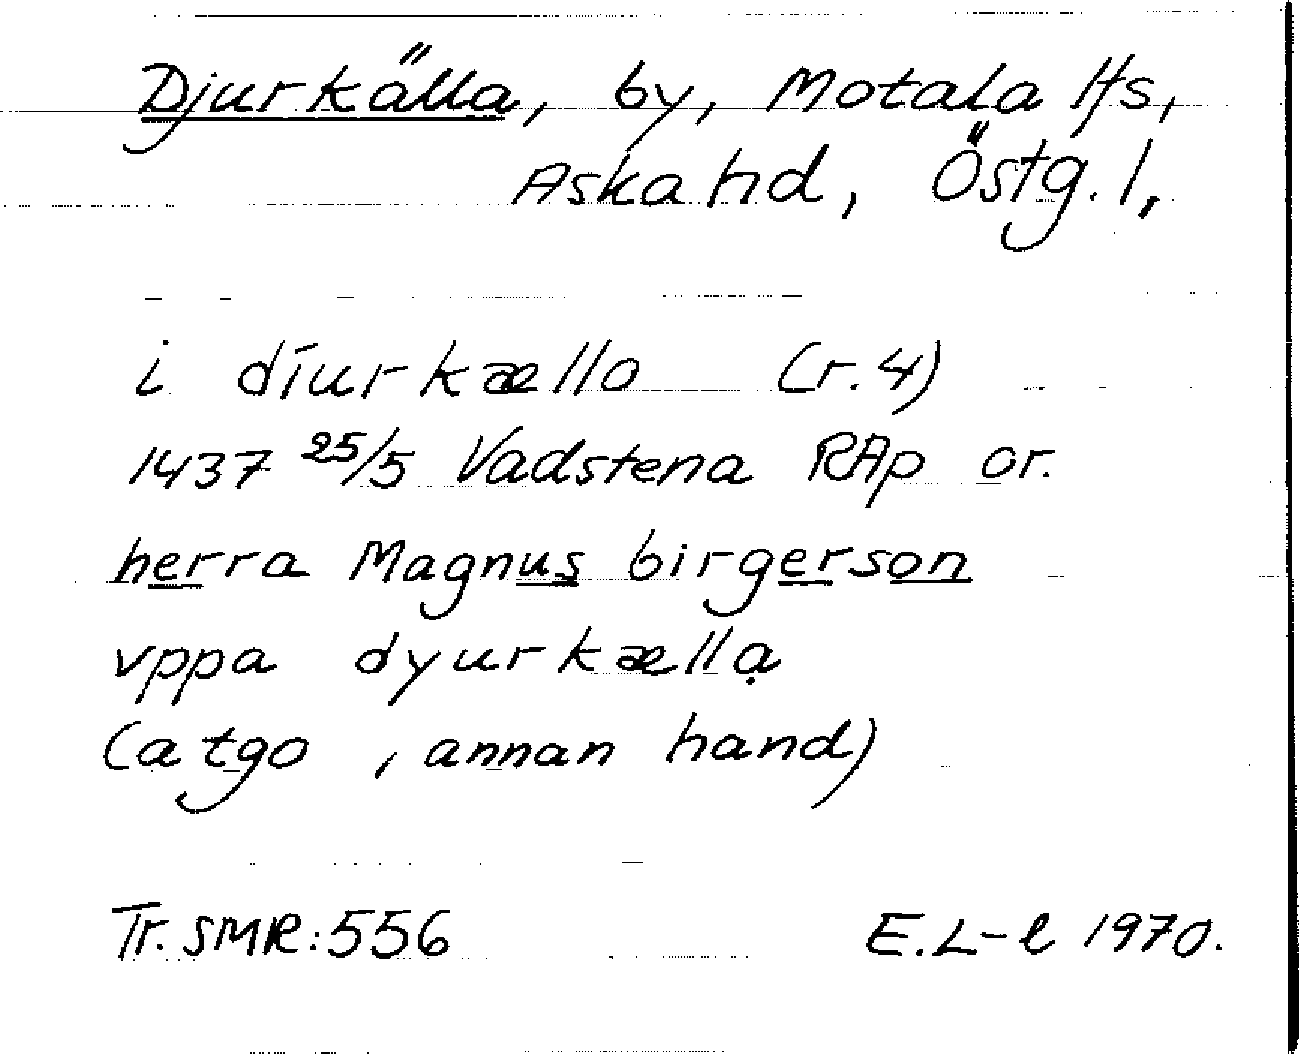 Djurkälla, by, Motala lfs,
Aska hd, Östg. l,
i díurkællo (r. 4)
1437 25/5 Vadstena RAp or.
herra Magnus birgerson
vppa dyurkællạ
(a tgo , annan hand)
Tr. SMR: 556 E.L-l 1970.